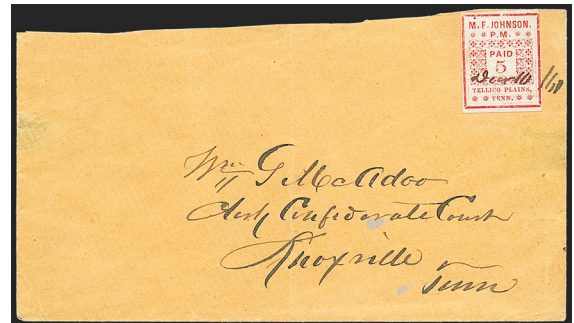 M. F. JOHNSON,
P. M.
PAID
5
TELLICO PLAINS,
TENN.
Wm G McAdoo
Clerk Confederate Court
Knoxville
Tenn